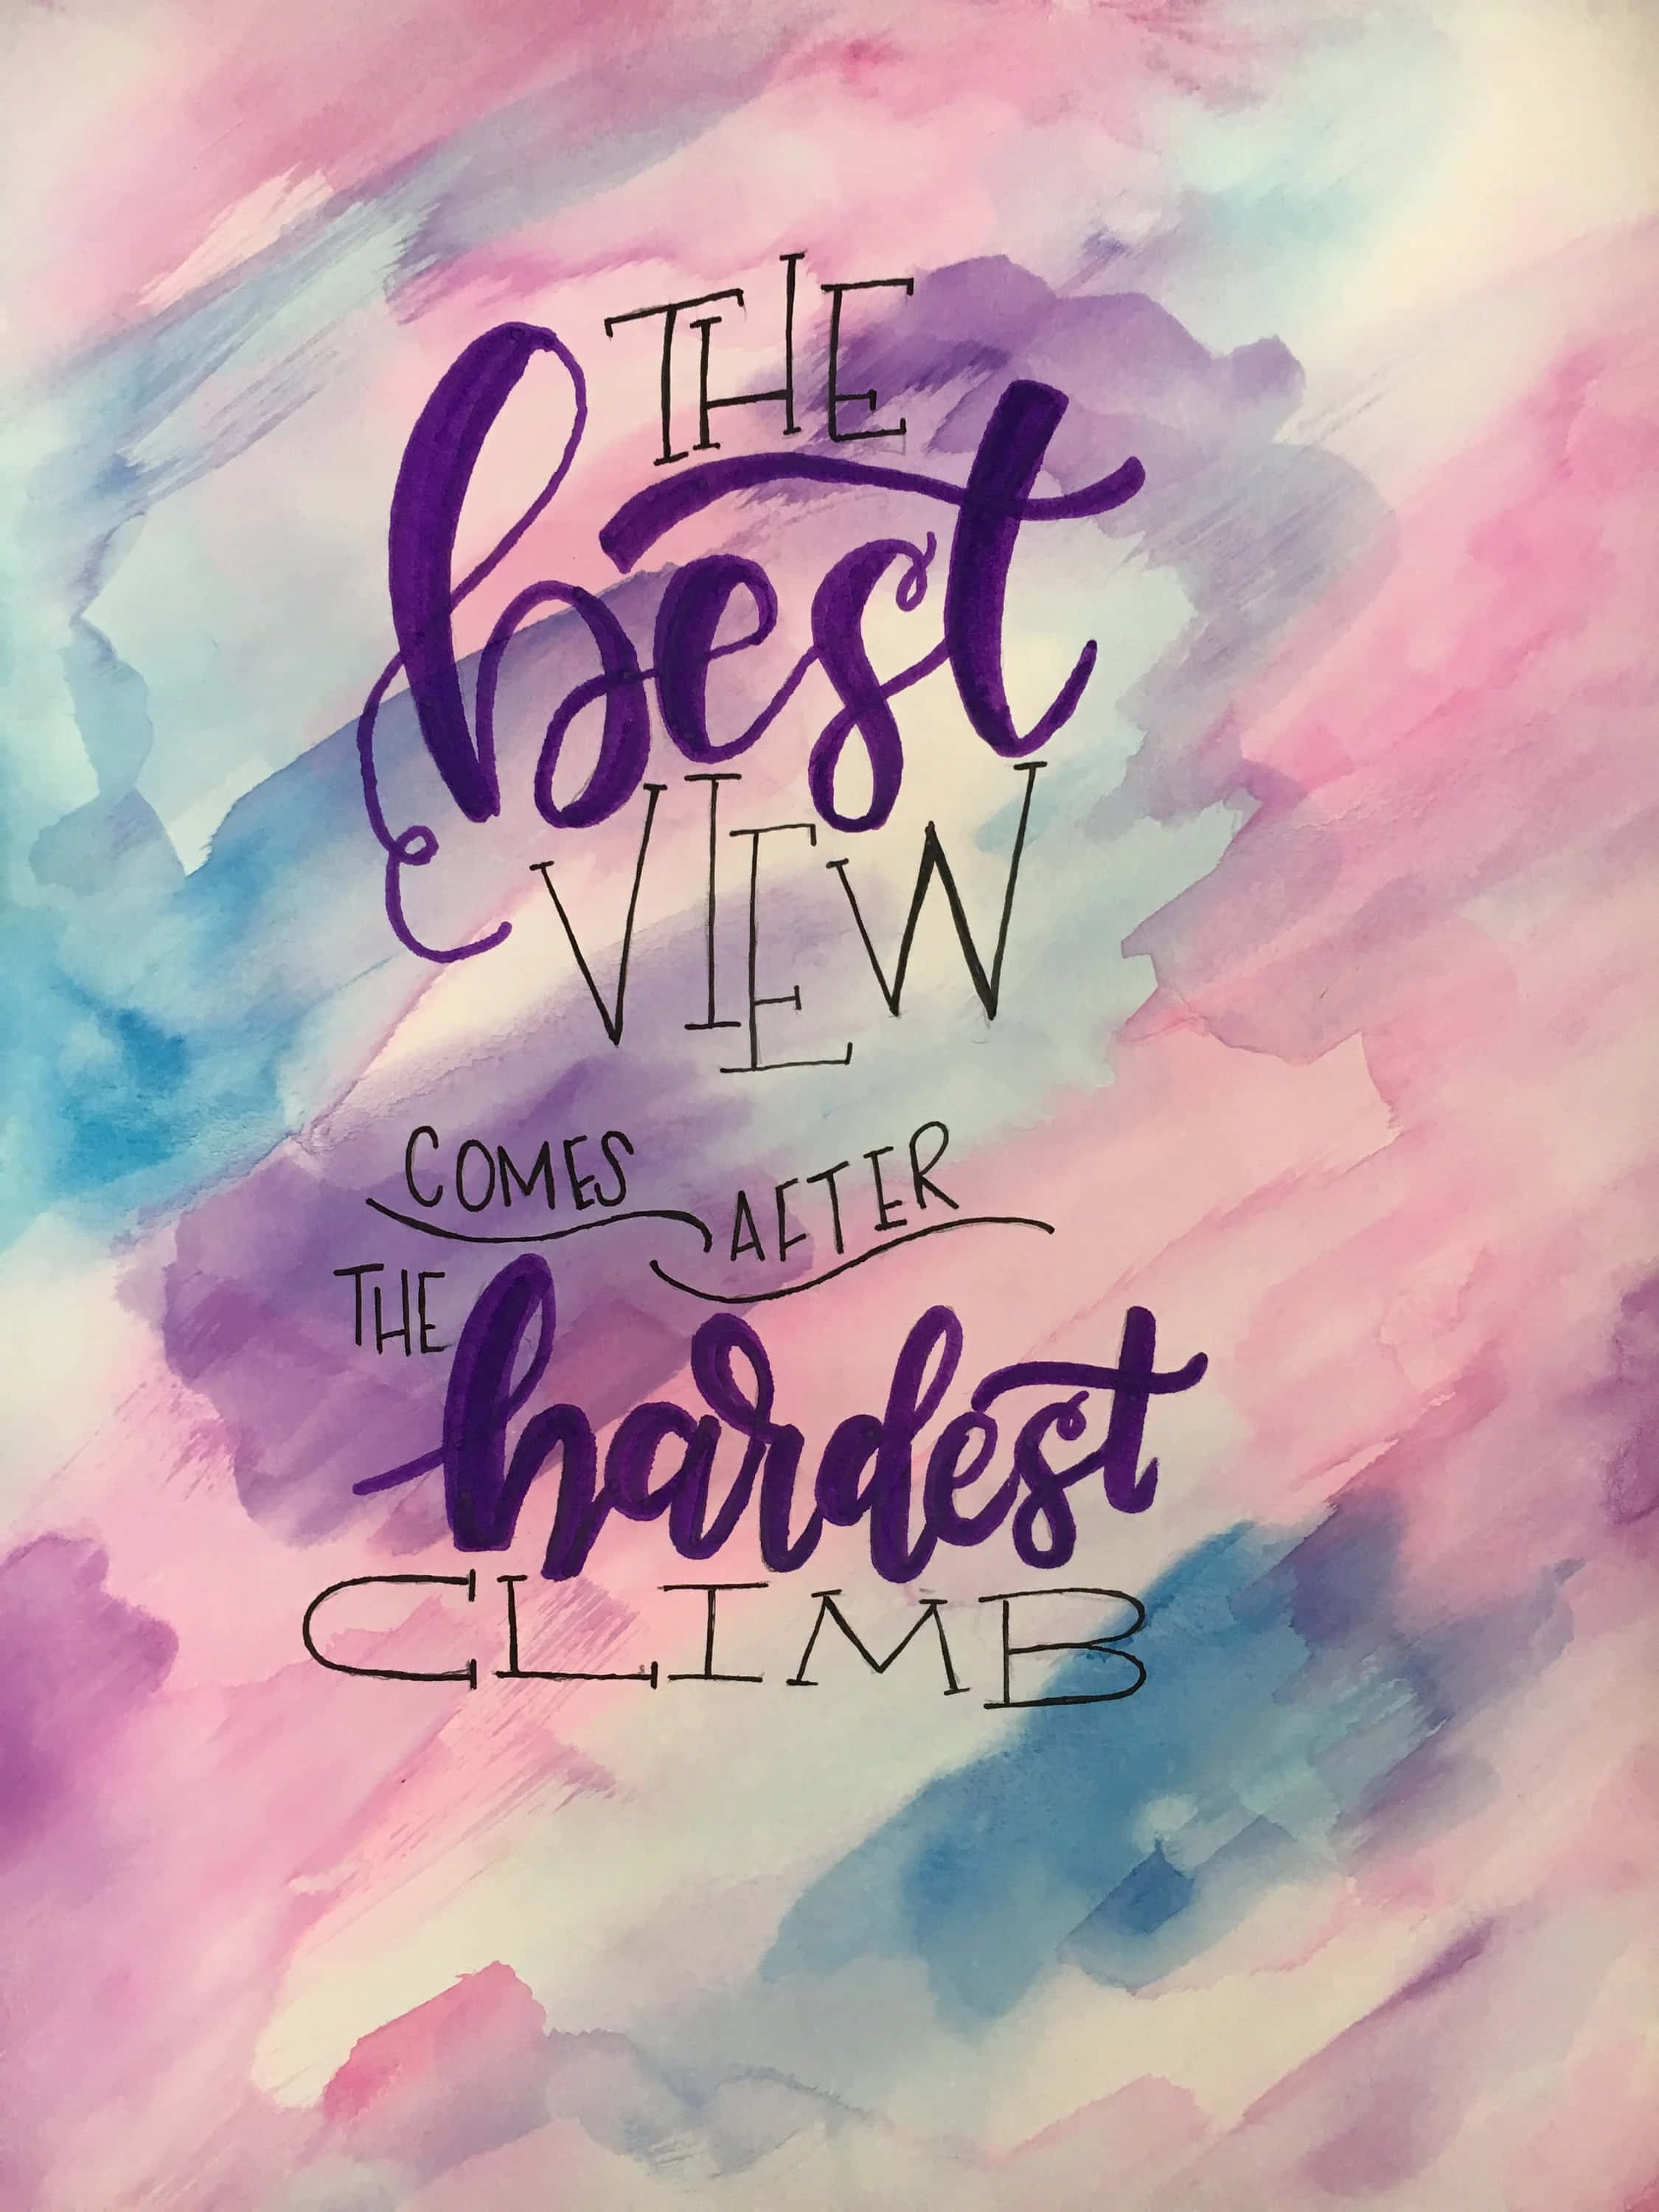 THE
best
VIEW
COMES AFTER
THE hardest
CLIMB